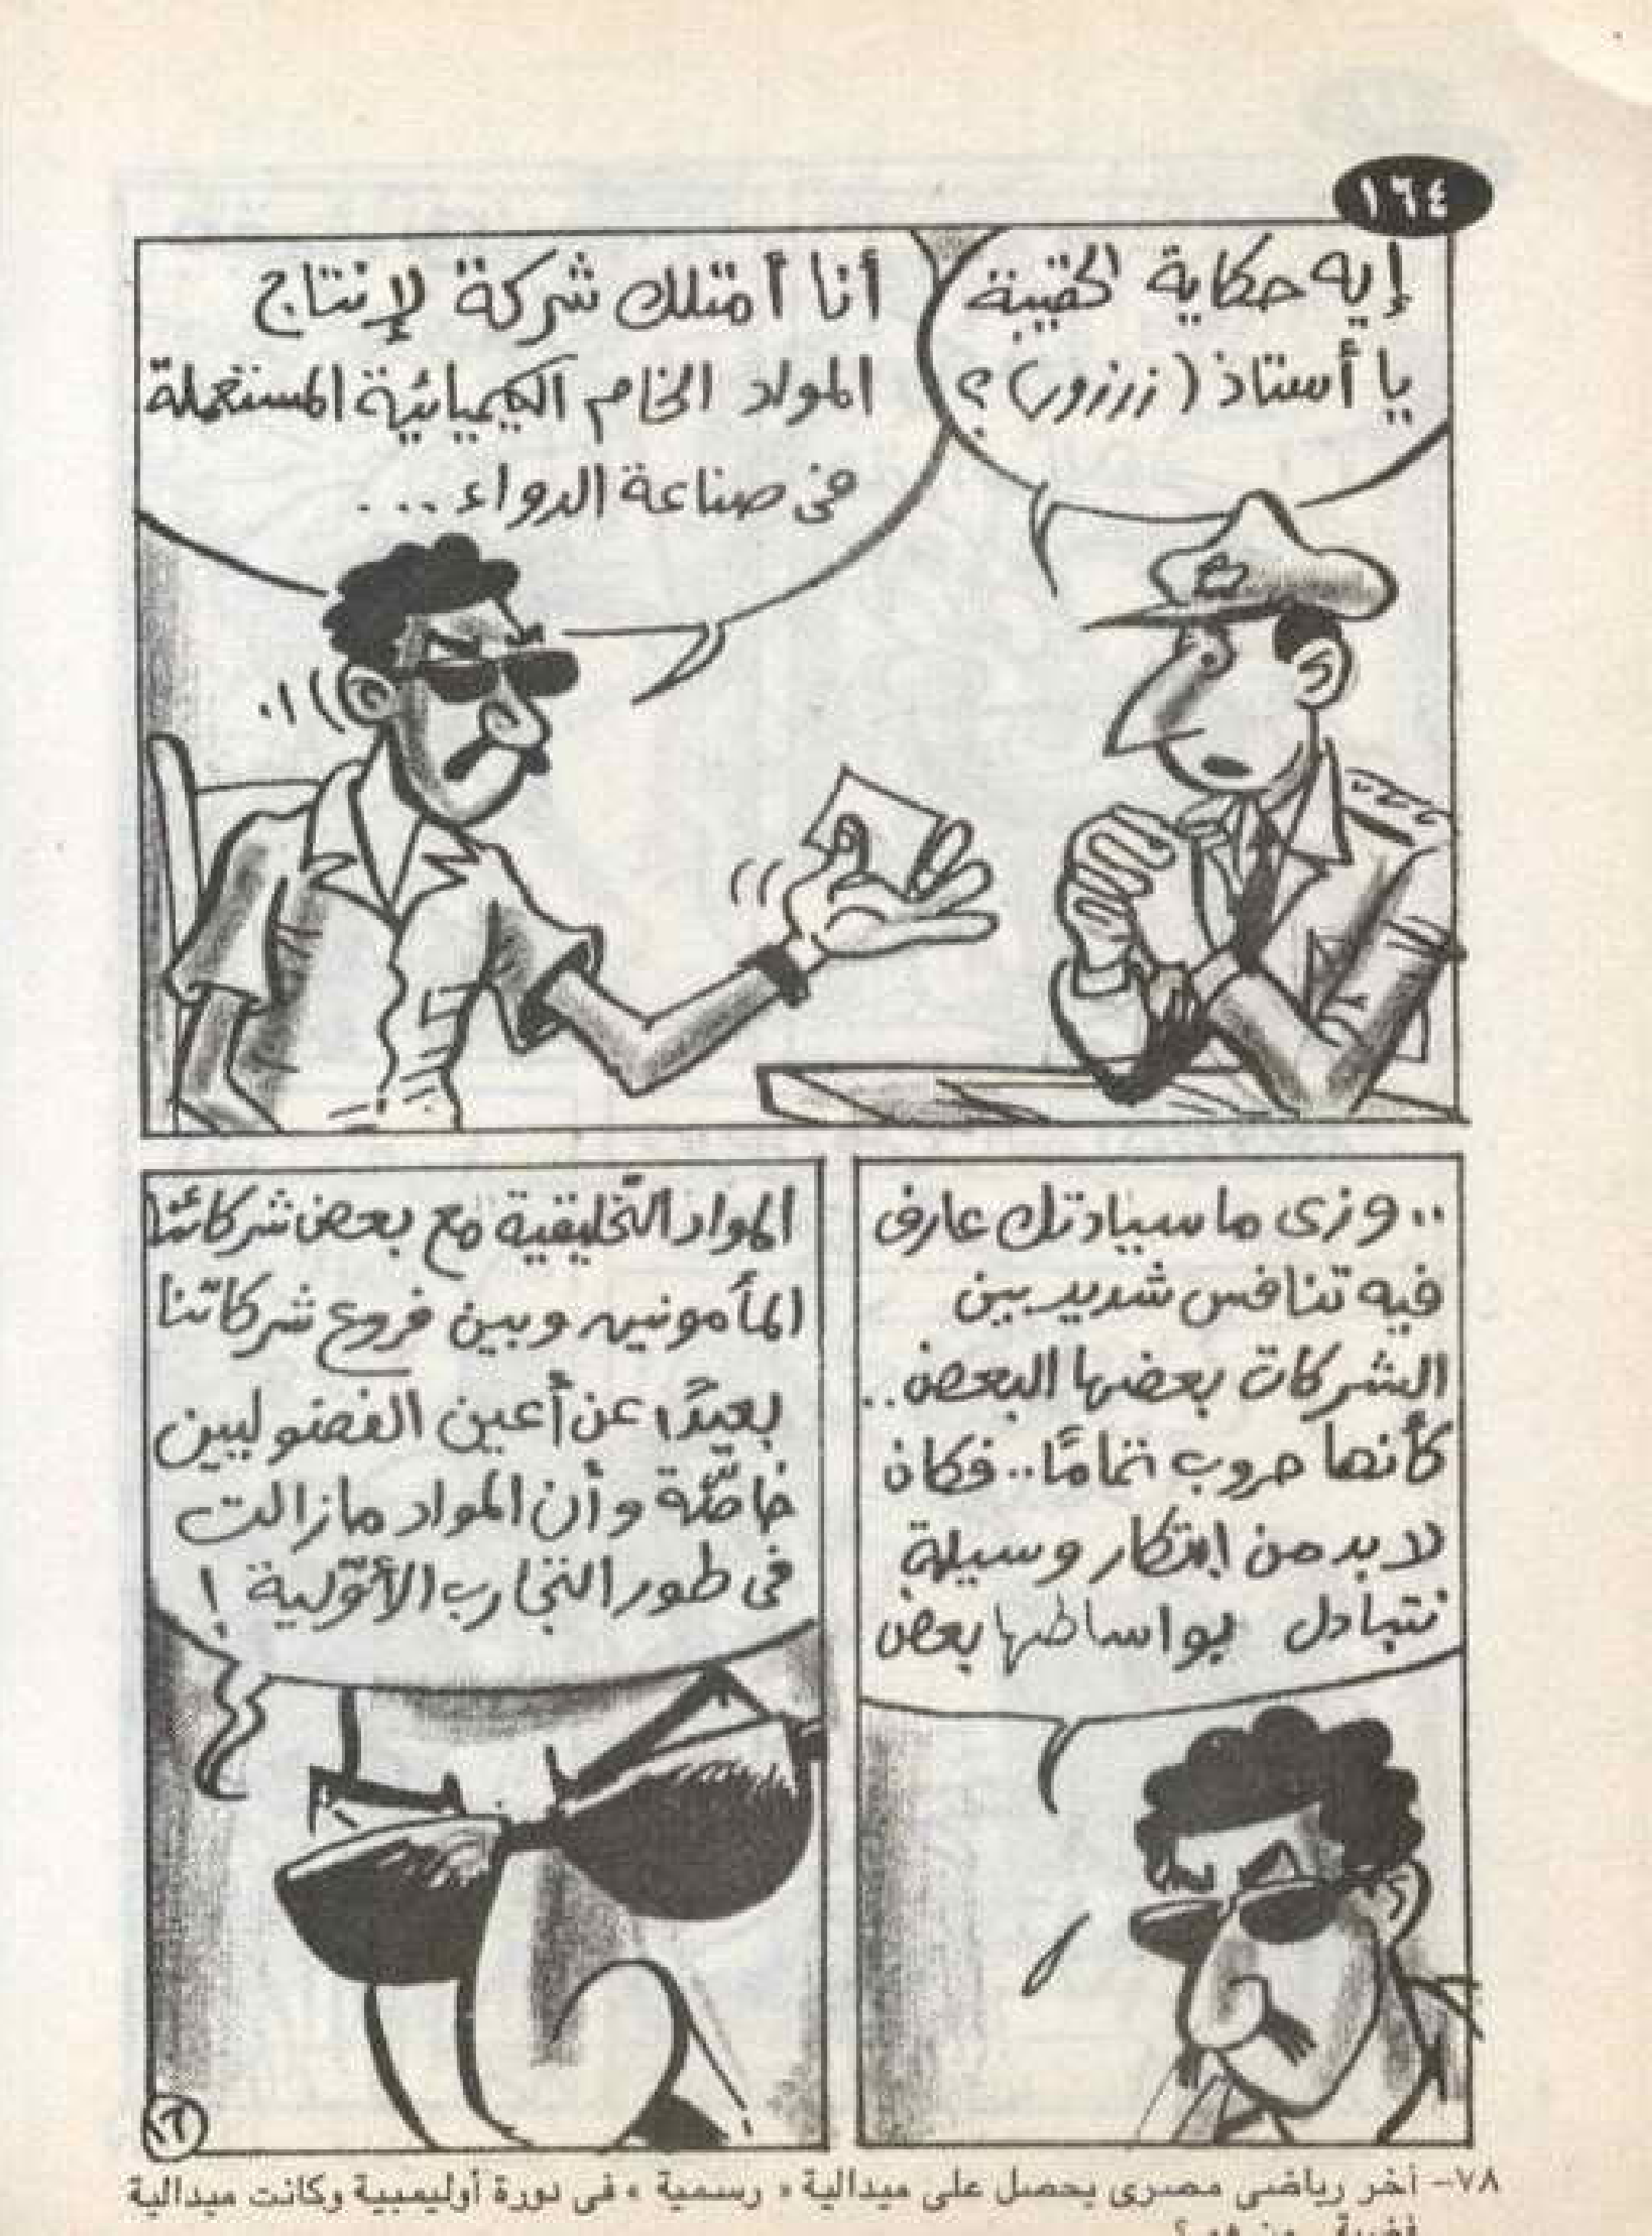 ١٦٤
إيه حكاية الحقيبة
يا أستاذ (زرزور)؟
أنا أمتلك شركة لإنتاج
المواد الخام الكيميائية المستعملة
فى صناعة الدواء ...
.. وزى ما سيادتك عارف
فيه تنافس شديد بين
الشركات بعضها البعض ..
كأنها حروب تمامًا .. فكان
لا بد من ابتكار وسيلة
نتبادل بواسطتها بعض
المواد التّخليقية مع بعض شركائنا
المأمونين وبين فروع شركاتنا
بعيدًا عن أعين الفضوليين
خاصّة وأن المواد مازالت
فى طور التجارب الأوّلية !
١٦
٧٨- آخر رياضي مصرى يحصل على ميدالية « رسمية » فى دورة أوليمبية وكانت ميدالية